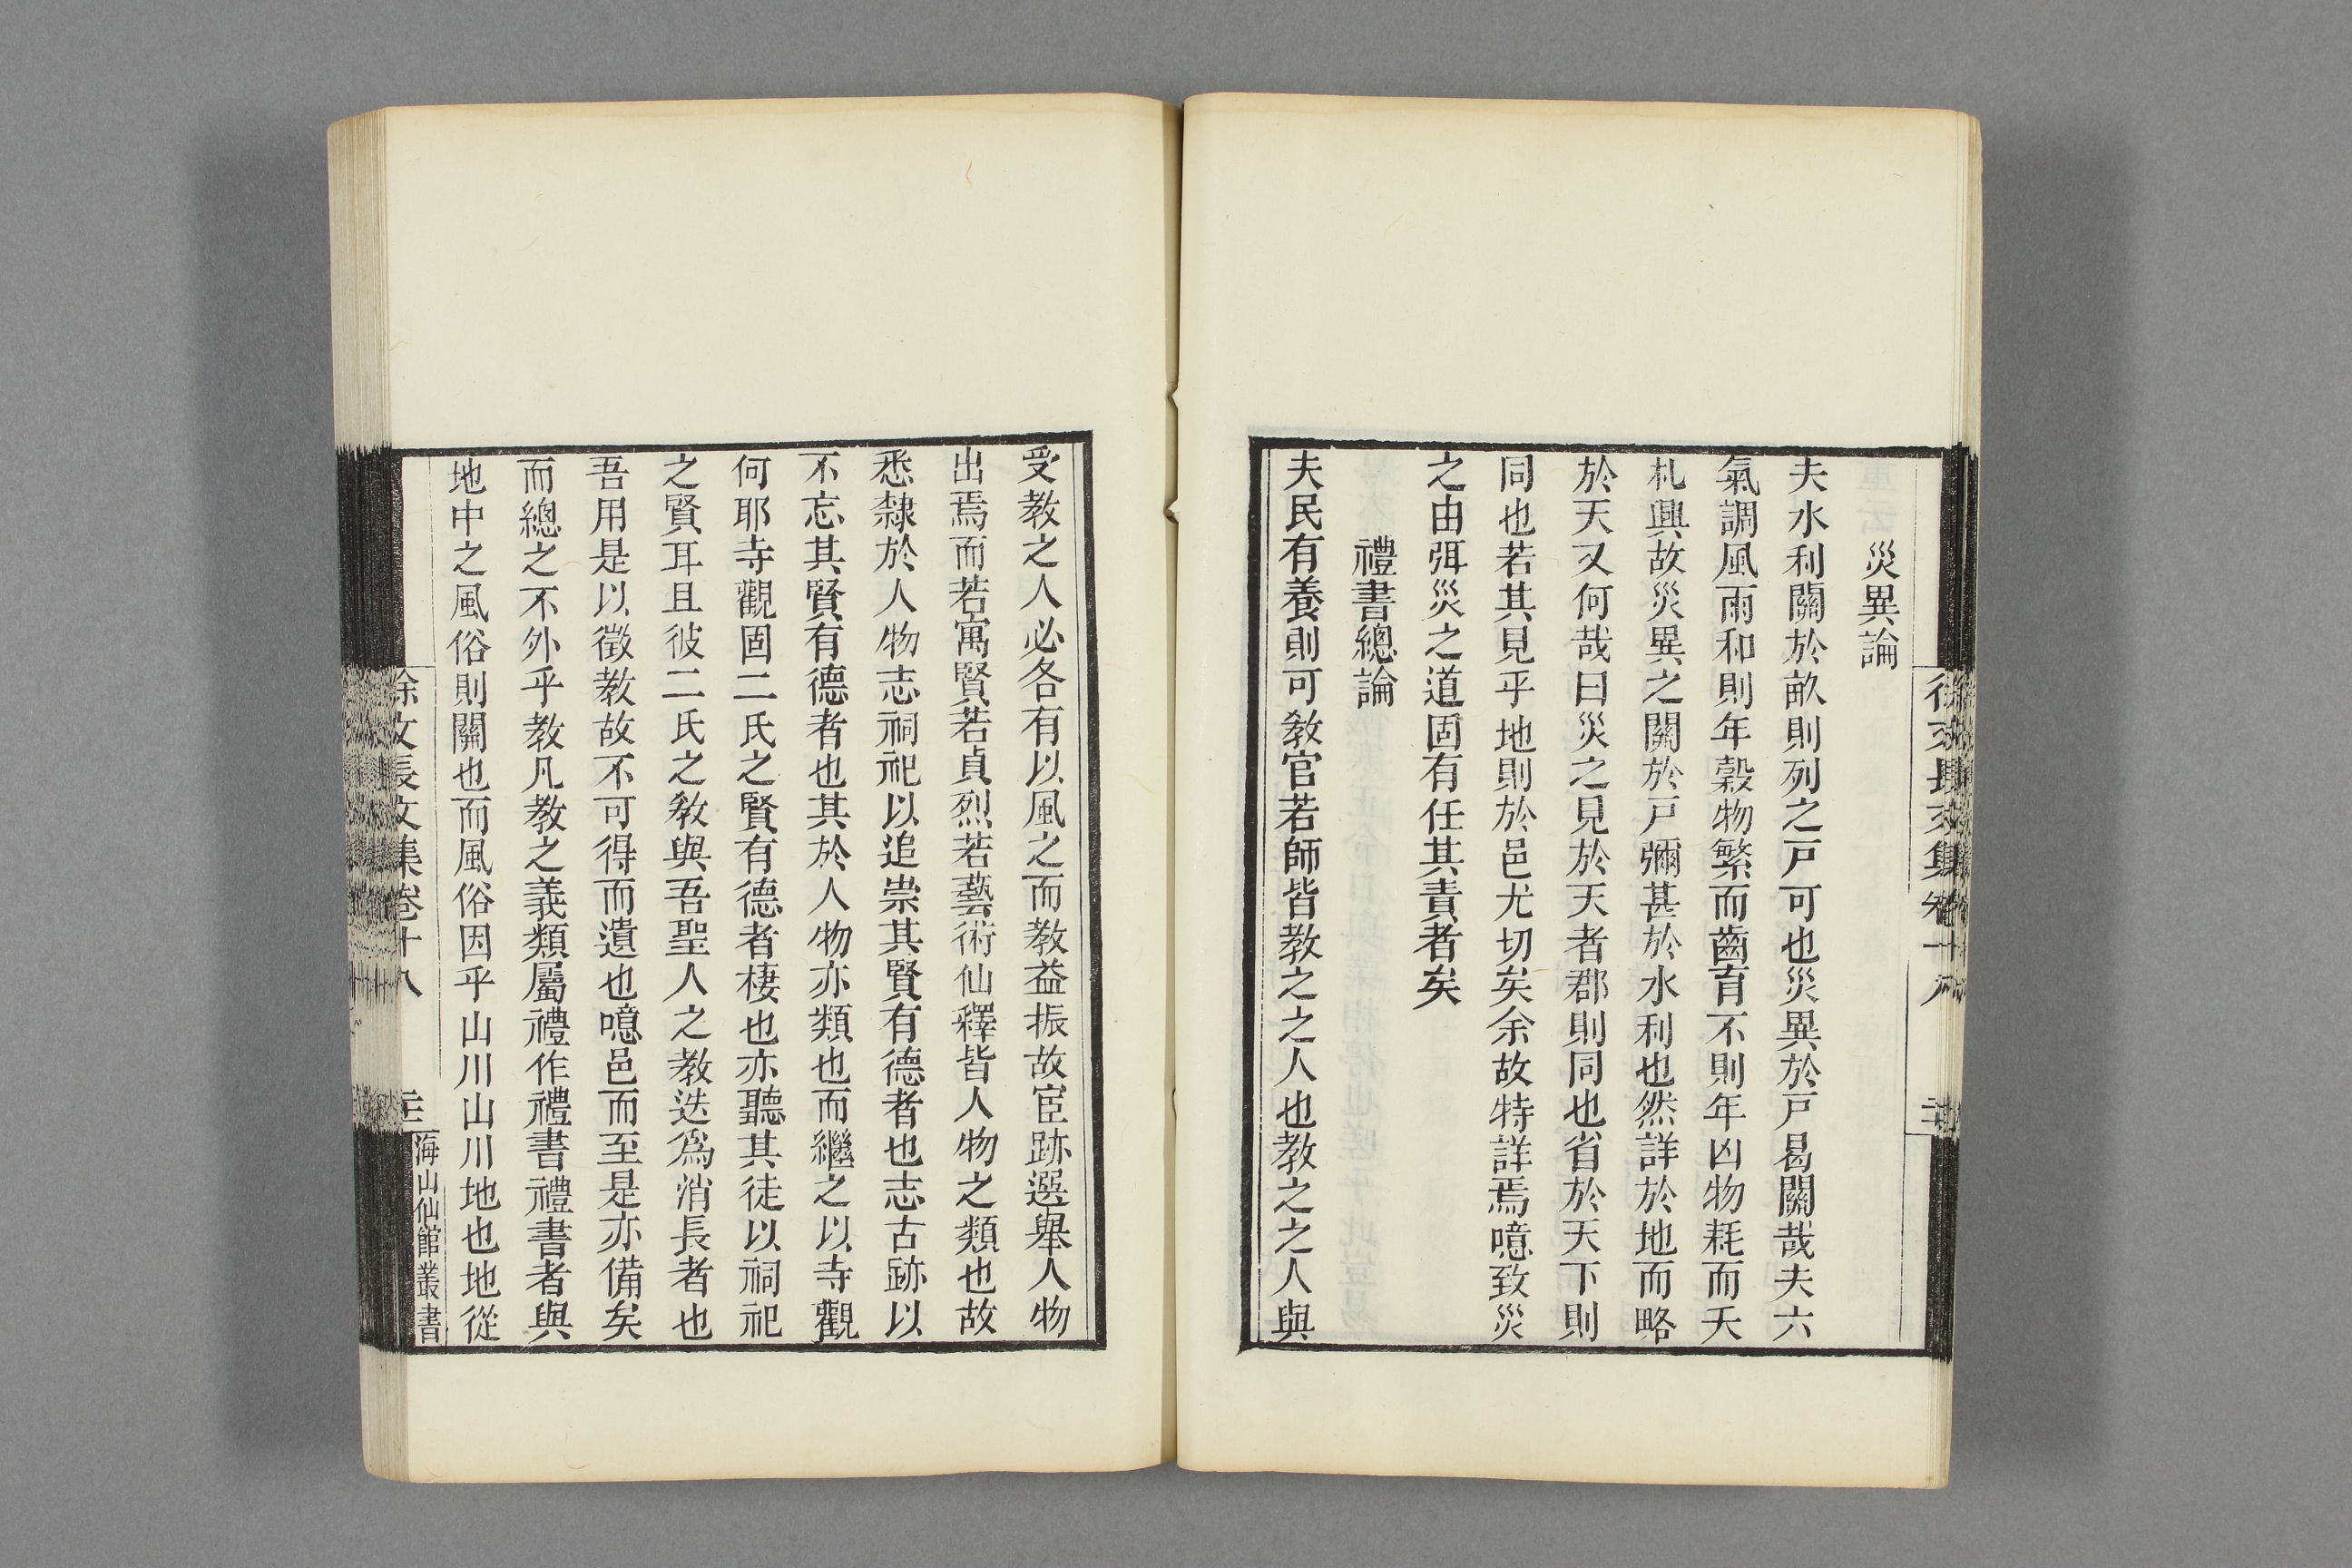 災異論
夫水利關於畝則列之戸可也災異於戸曷關哉夫六
氣調風雨和則年穀物繁而齒育不則年凶物耗而夭
札興故災異之關於戸彌甚於水利也然詳於地而略
於天又何哉曰災之見於天者郡則同也省於天下則
同也若其見乎地則於邑尤切矣余故特詳焉噫致災
之由弭災之道固有任其責者矣
禮書總論
夫民有養則可教官若師皆教之之人也教之之人與
徐文長文集卷十八
受教之人必各有以風之而教益振故宦跡選舉人物
出焉而若寓賢若貞烈若藝術仙釋皆人物之類也故
悉隸於人物志祠祀以追崇其賢有德者也志古跡以
不忘其賢有德者也其於人物亦類也而繼之以寺觀
何耶寺觀固二氏之賢有德者棲也亦聽其徒以祠祀
之賢耳且彼二氏之教與吾聖人之教迭爲消長者也
吾用是以徵教故不可得而遺也噫邑而至是亦備矣
而總之不外乎教凡教之義類屬禮作禮書禮書者與
地中之風俗則關也而風俗因乎山川山川地也地從
徐文長文集卷十八
海山仙館叢書